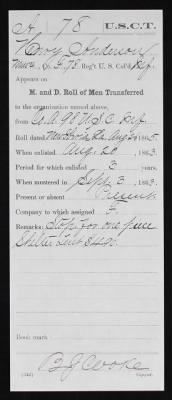 A 78 U.S.C.T.
Anderson
Co. F, 78 Reg't U. S. Col'd Inf.
Appears on
M. and D. Roll of Men Transferred
to the organization named above,
from Co. A 98 U S C Inf
Roll dated Aug 1865.
When enlisted Aug. 20, 1863.
Period for which enlisted 3 years.
When mustered in Sept 3, 1863.
Present or absent Present
Company to which assigned F.
Remarks: Stop for one piece
Shelter Tent
Book mark:
B J Cooke
Copyist.